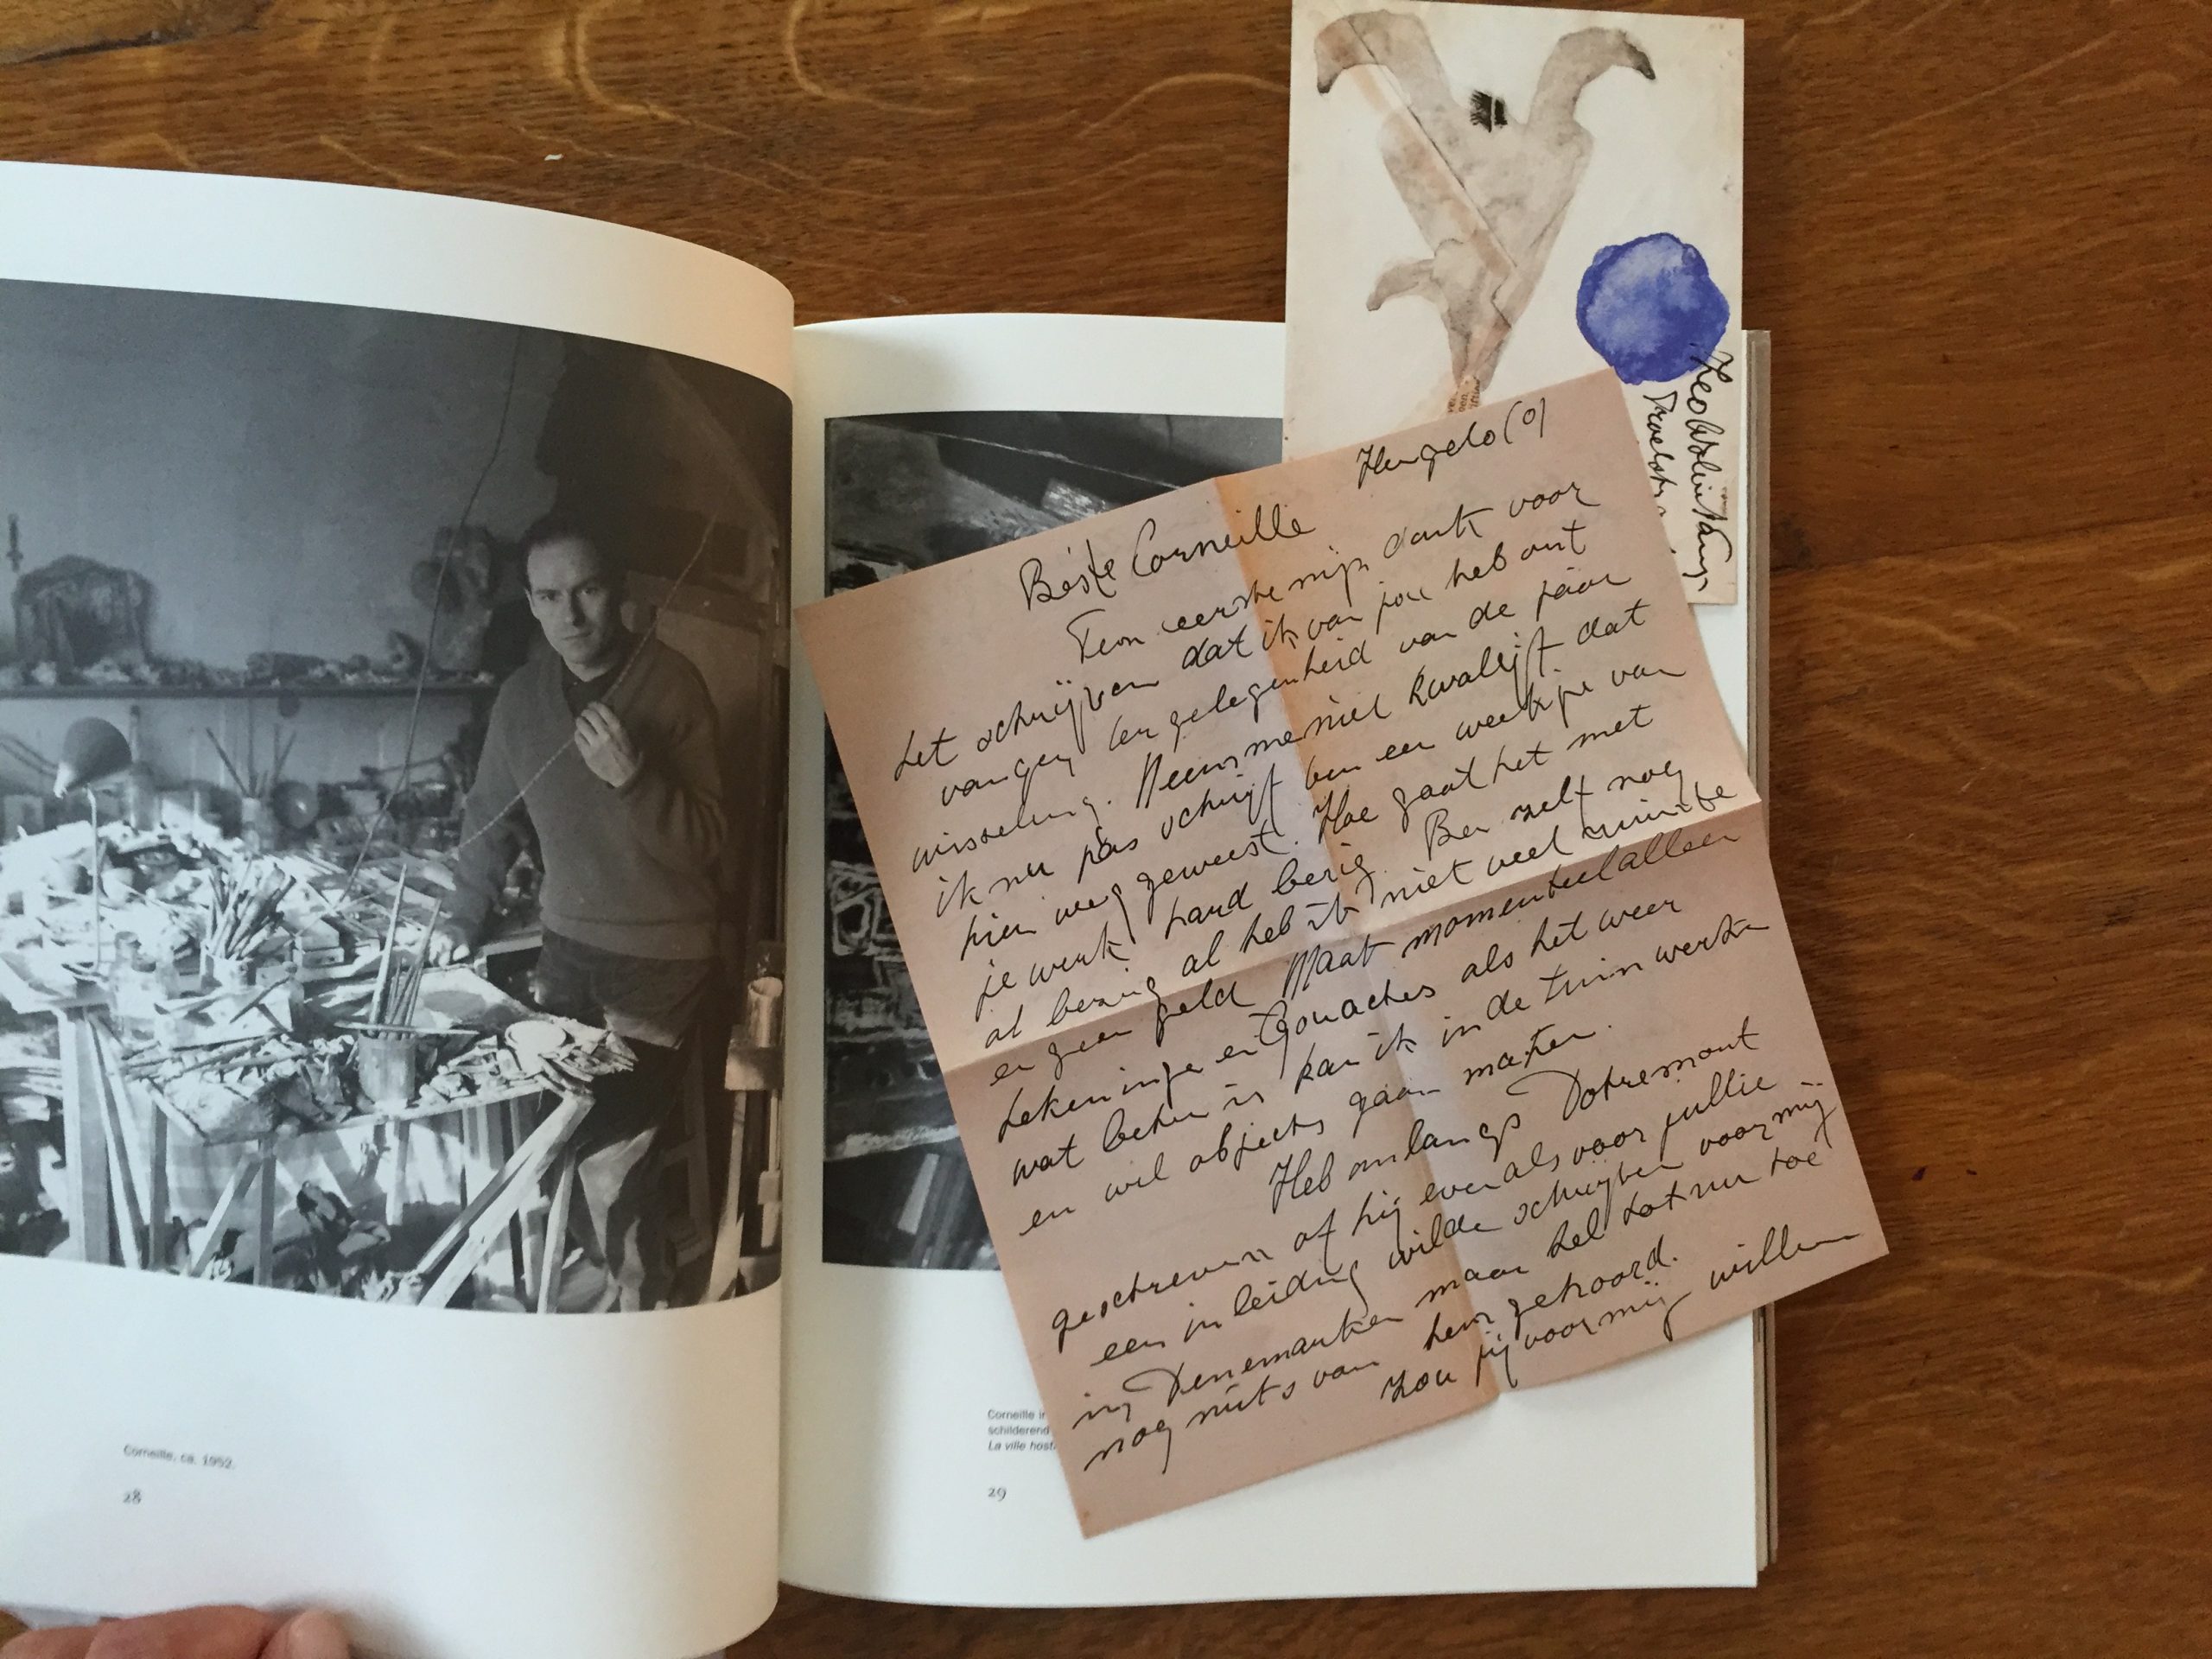 Corneille, ca. 1952.
28
Theo Wolvecamp
Troelstra
Hengelo (O)
Beste Corneille
Ten eerste mijn dank voor
het schrijven dat ik van jou heb ont
vangen ter gelegenheid van de jaar
wisseling. Neem me niet kwalijk dat
ik nu pas schrijf ben een weekje van
hier weg geweest. Hoe gaat het met
je werk hard bezig Ben zelf nog
al bezig al heb ik niet veel ruimte
en geen geld Maak momenteel alleen
tekeninge en Gouaches als het weer
wat beter is kan ik in de tuin werken
en wil objects gaan maken.
Heb onlangs Dotremont
geschreven of hij evenals voor jullie
een inleiding wilde schrijven voor mij
in Denemarken maar heb tot nu toe
nog niets van hem gehoord.
Zou jij voor mij willen
Corneille in
schilderend
La ville host
29